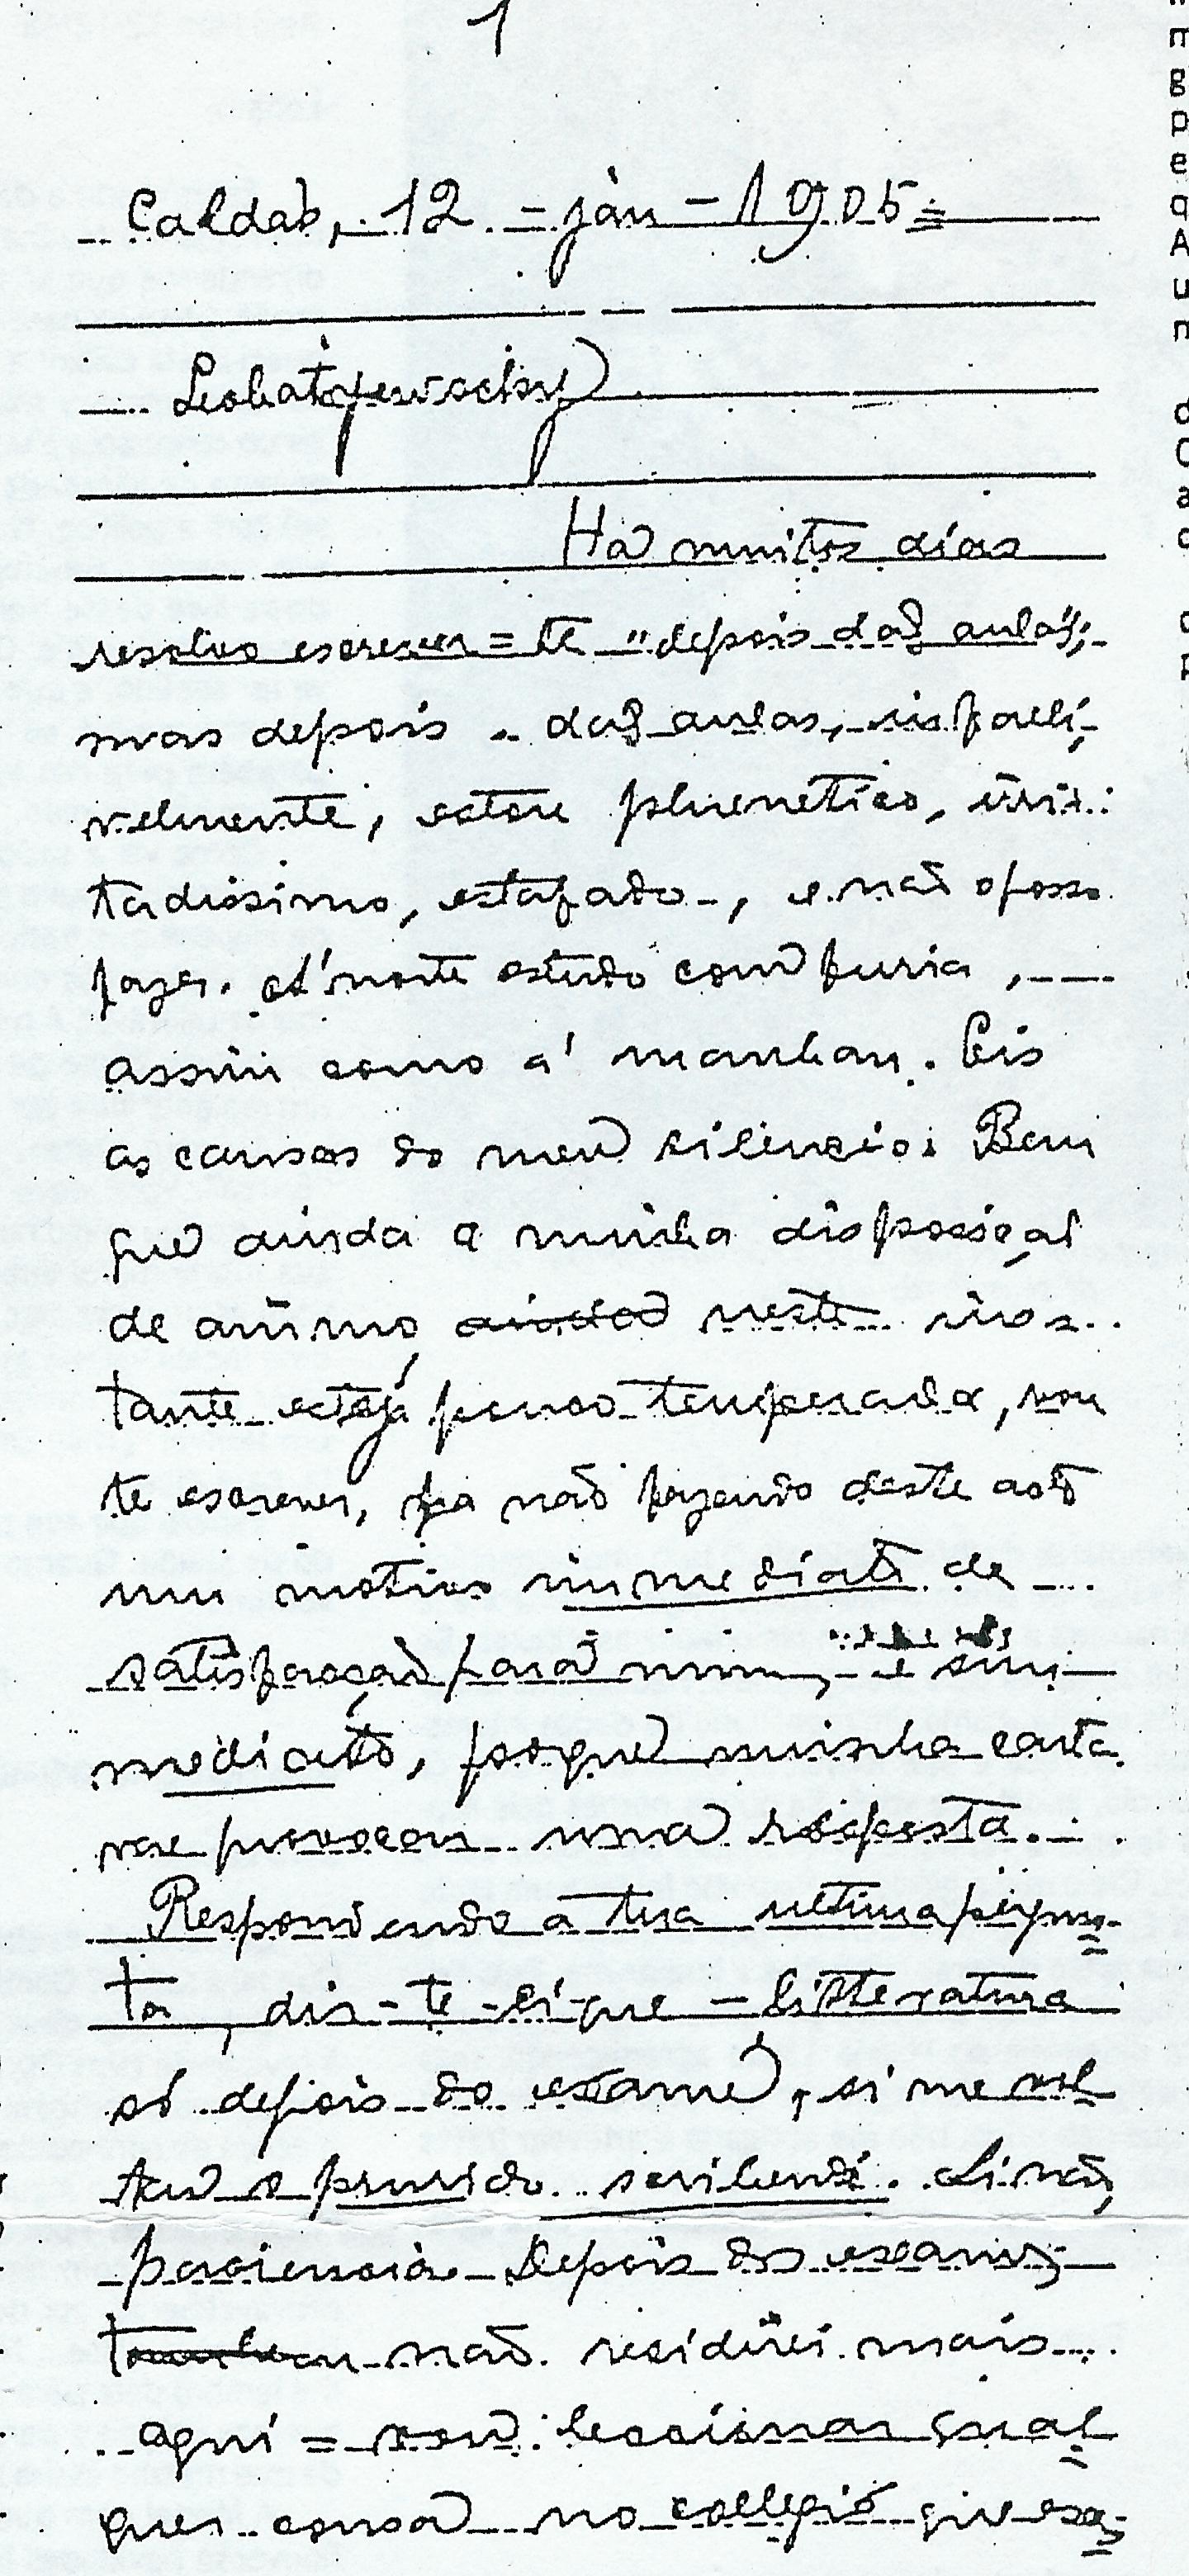 1
Caldas, 12 - jan - 1905 =
Lobatoyewsky
Ha muitos dias
resolvo escrever=te "depois das aulas";
mas depois das aulas, infalli-
velmente, estou phrenetico, irri-
tadissimo, estafado, e não o posso
fazer. A' noite estudo com furia,
assim como a' manhan. Eis
as causas do meu silencio. Bem
que ainda a minha disposição
de animo, neste ins-
tante esteja pouco temperada, vou
te escrever, ja não fazendo deste acto
um motivo immediato de
satisfacção para mim, e sim
mediato, porque minha carta
vae provocar uma resposta.
Respondendo a tua ultima pergun-
ta, dir-te-ei que - litteratura
só depois do exame, si me vol
tar o prurido scribendi. Si não,
paciencia. Depois dos exames,
tambem não residirei mais
aqui = vou leccionar qual
quer cousa no collegio que esta
m
g
p
e
q
A
u
n
d
C
a